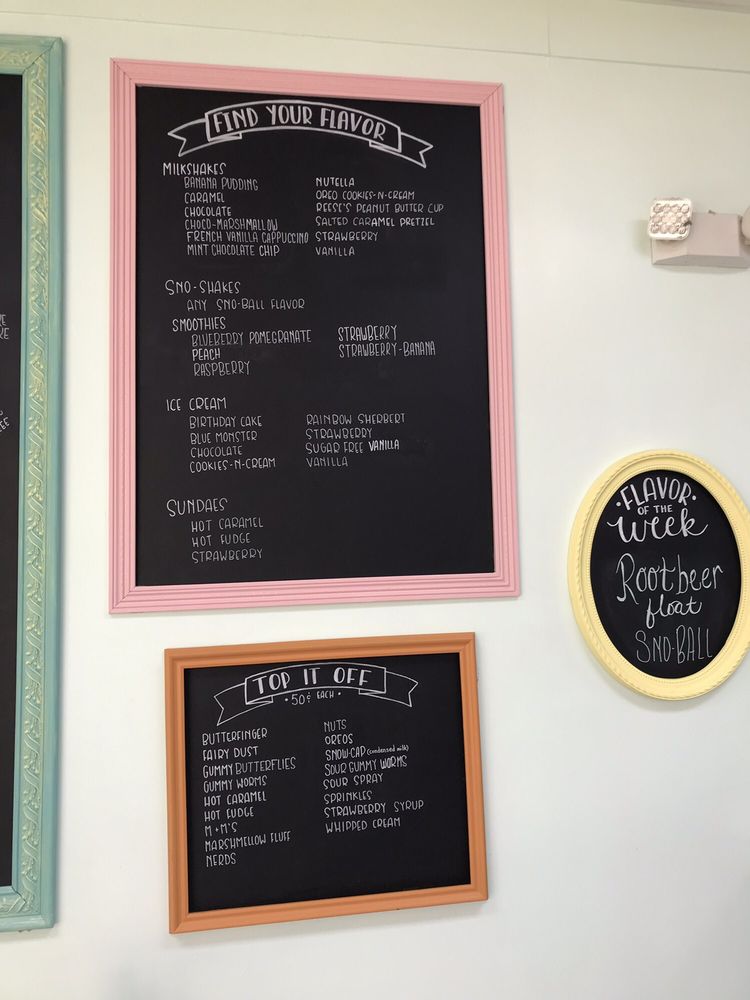 FIND YOUR FLAVOR
MILKSHAKES
BANANA PUDDING
CARAMEL
CHOCOLATE
CHOCO-MARSHMALLOW
FRENCH VANILLA CAPPUCCINO
MINT CHOCOLATE CHIP
NUTELLA
OREO COOKIES-N-CREAM
REESE'S PEANUT BUTTER CUP
SALTED CARAMEL PRETZEL
STRAWBERRY
VANILLA
SNO-SHAKES
ANY SNO-BALL FLAVOR
SMOOTHIES
BLUEBERRY POMEGRANATE
PEACH
RASPBERRY
STRAWBERRY
STRAWBERRY-BANANA
ICE CREAM
BIRTHDAY CAKE
BLUE MONSTER
CHOCOLATE
COOKIES-N-CREAM
RAINBOW SHERBERT
STRAWBERRY
SUGAR FREE VANILLA
VANILLA
SUNDAES
HOT CARAMEL
HOT FUDGE
STRAWBERRY
TOP IT OFF
• 50¢ EACH •
BUTTERFINGER
FAIRY DUST
GUMMY BUTTERFLIES
GUMMY WORMS
HOT CARAMEL
HOT FUDGE
M+M'S
MARSHMELLOW FLUFF
NERDS
NUTS
OREOS
SNOW-CAP (condensed milk)
SOUR GUMMY WORMS
SOUR SPRAY
SPRINKLES
STRAWBERRY SYRUP
WHIPPED CREAM
• FLAVOR •
OF THE
week
Rootbeer
float
SNO-BALL